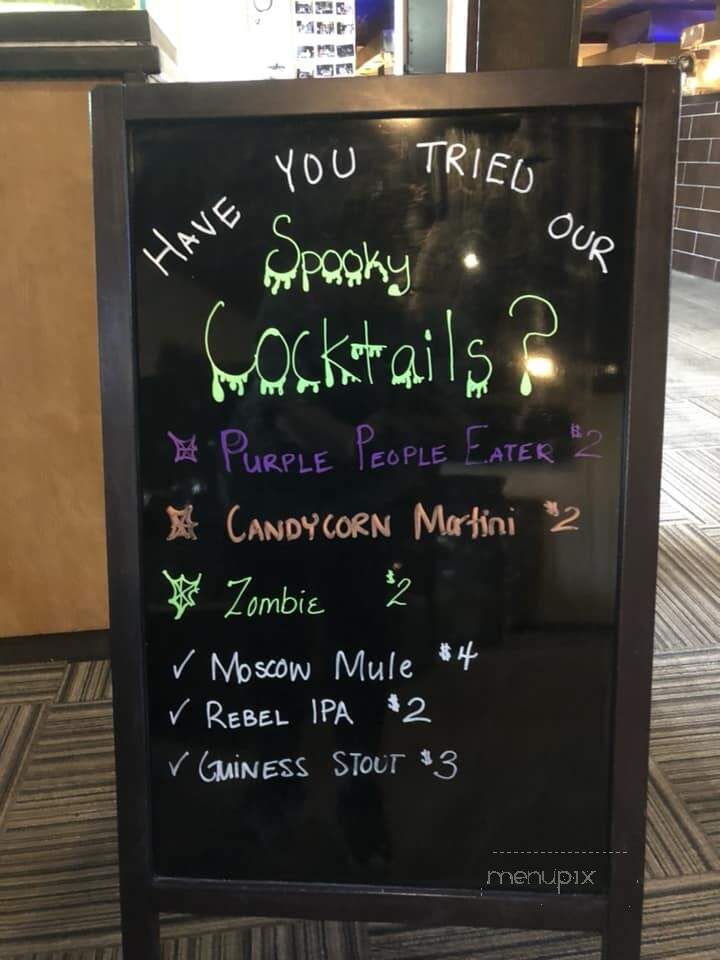 HAVE YOU TRIED OUR
Spooky
Cocktails?
PURPLE PEOPLE EATER $2
CANDYCORN Martini $2
Zombie $2
✓ Moscow Mule $4
✓ REBEL IPA $2
✓ GUINESS STOUT $3
menupix